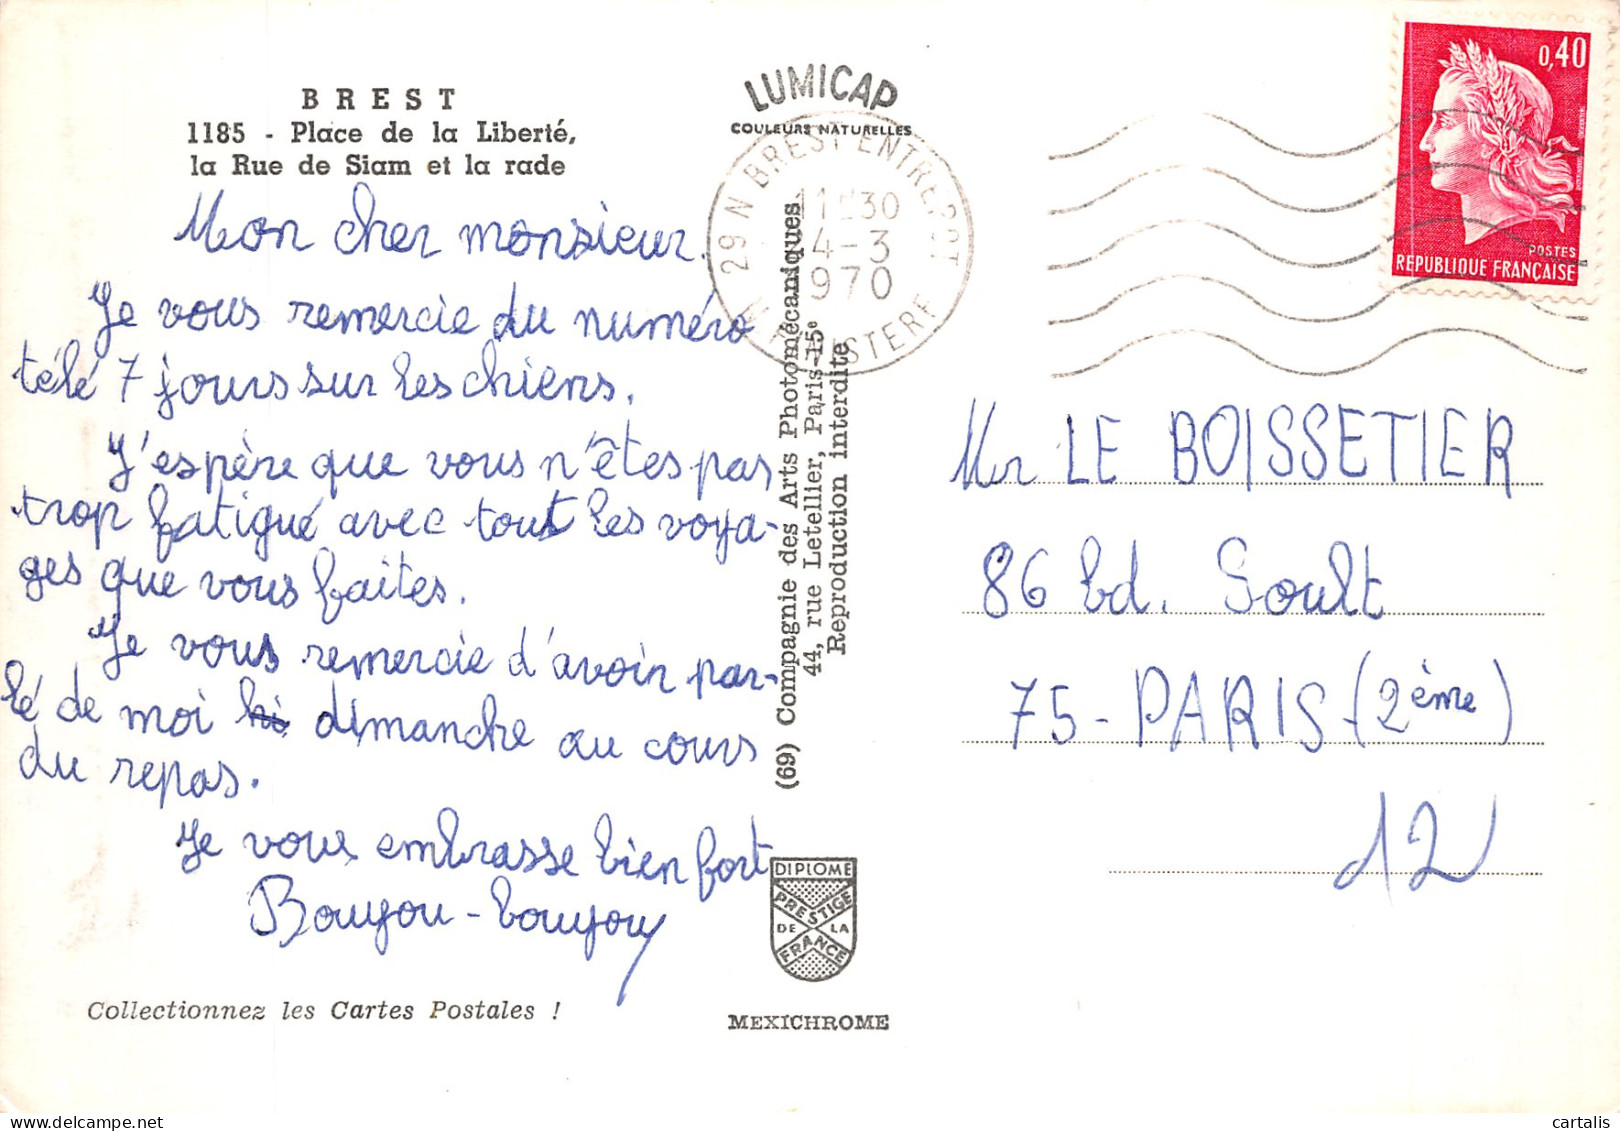 BREST
1185 - Place de la Liberté,
la Rue de Siam et la rade
Mon cher monsieur.
Je vous remercie du numéro
télé 7 jours sur les chiens.
J'espère que vous n'êtes pas
trop fatigué avec tout les voya-
ges que vous faites.
Je vous remercie d'avoir par-
lé de moi dimanche au cours
du repas.
Je vous embrasse bien fort
Boujou-boujou
Collectionnez les Cartes Postales !
LUMICAP
COULEURS NATURELLES
29 N BREST ENTREPOT
11 30
4-3
970
FINISTERE
(69) Compagnie des Arts Photomécaniques
44, rue Letellier, Paris-15e
Reproduction interdite
DIPLOME
PRESTIGE
DE LA
FRANCE
MEXICHROME
0,40
POSTES
REPUBLIQUE FRANÇAISE
Mr LE BOISSETIER
86 bd. Soult
75-PARIS (2ème)
12
cartalis